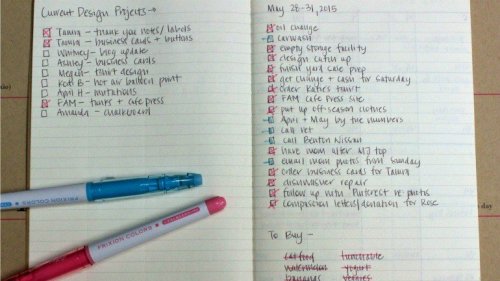 Current Design Projects →
Tamra - thank you notes/labels
Tamra - business cards + buttons
Whitney - blog update
Ashley - business cards
Megan - tshirt design
Kori B - hot air balloon print
April H - invitations
FAM - tanks + cafe press
Amanda - chalkboard
FRIXION COLORS
FRIXION COLORS
May 28-31, 2015
oil change
carwash
empty storage facility
design catch up
finish yard sale prep
get change + cash for saturday
order Katie's tshirt
FAM cafe press site
put up off-season clothes
April + May by the numbers
call vet
call Benton Nissan
have mom alter MJ top
email mom photos from Sunday
order business cards for Tamra
dishwasher repair
follow up with Pinterest re: photos
compassion letters/donation for Rose
To Buy -
cat food lunchable
watermelon yogurt
bananas veggies